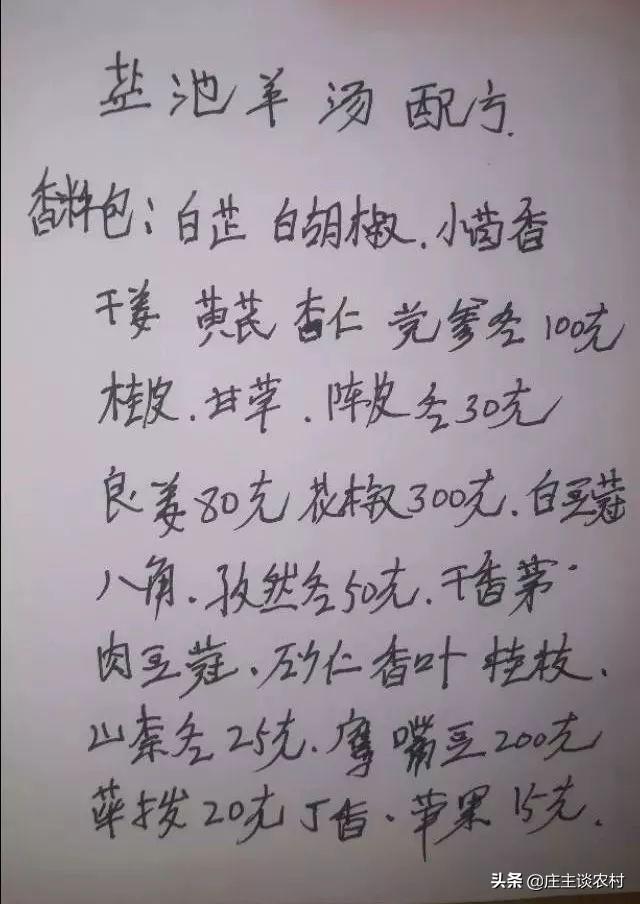 盐池羊汤配方.
香料包:白芷 白胡椒.小茴香
干姜 黄芪 杏仁 党参各100克
桂皮.甘草.陈皮各30克
良姜80克 花椒300克.白豆蔻
八角.孜然各50克.干香茅.
肉豆蔻.砂仁 香叶 桂枝.
山柰各25克.鹰嘴豆200克
荜拨20克 丁香.草果15克.
头条 @庄主谈农村